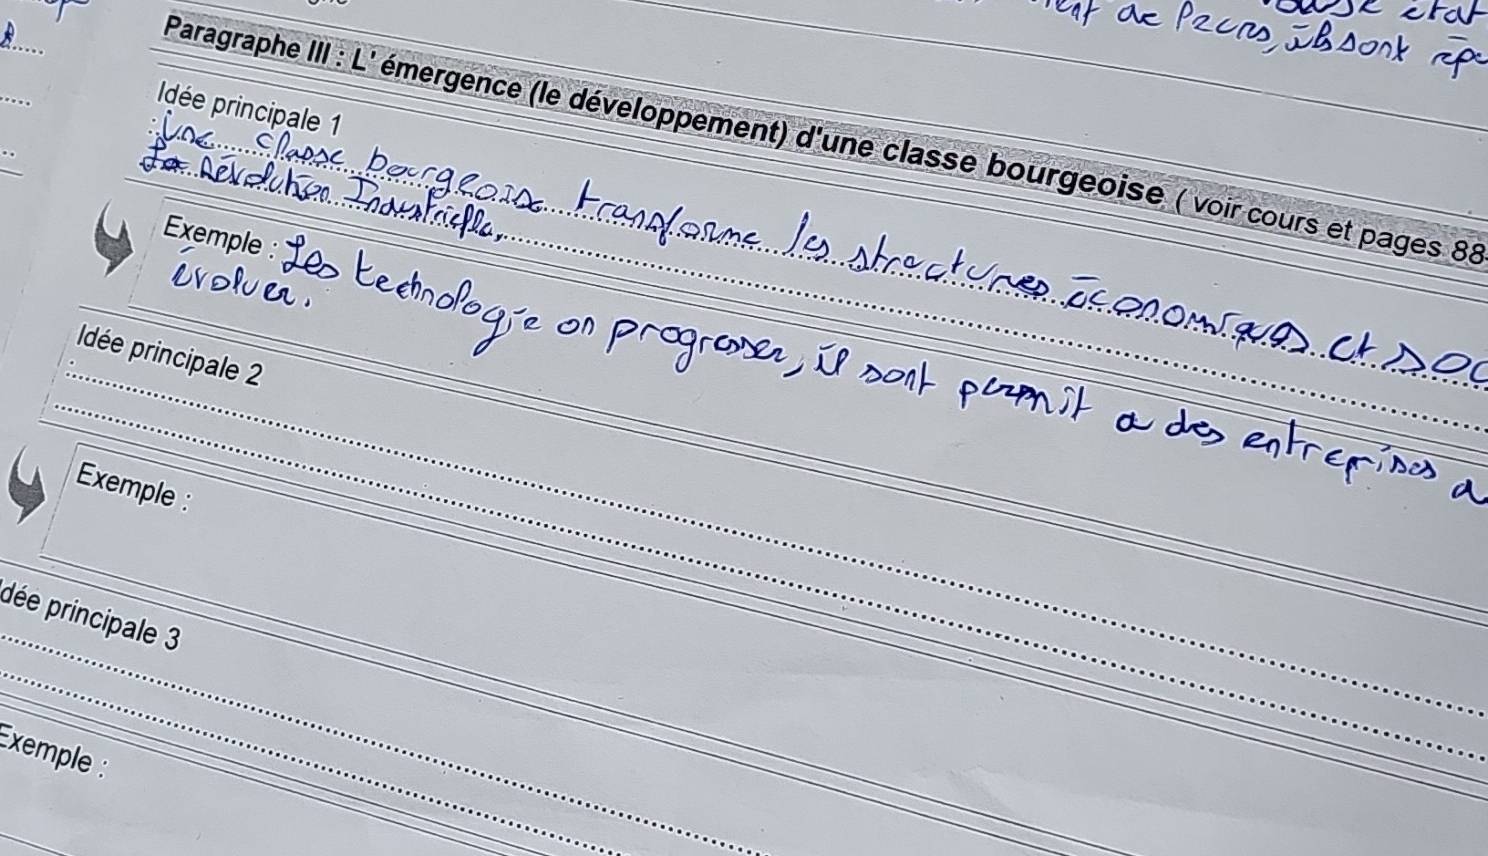 de Pecrs, ils sont
Paragraphe III : L'émergence (le développement) d'une classe bourgeoise ( voir cours et pages 88
Idée principale 1
: Une classe bourgeoise transforme les structures économiques et soc
Révolution Industrielle,
Exemple : Les technologie on progresser, il sont permit a des entreprises d
évoluer.
Idée principale 2
Exemple :
Idée principale 3
Exemple :